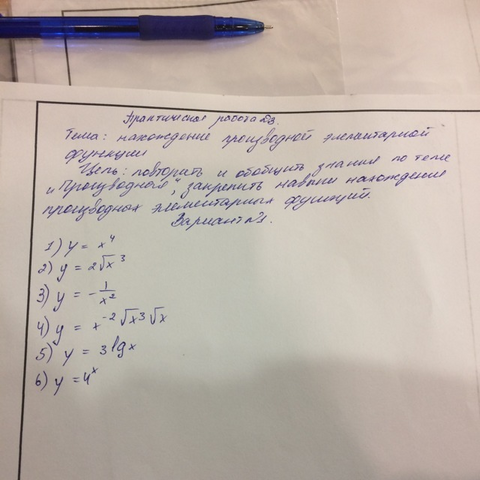 Практическая работа №3.
Тема: нахождение производной элементарной
функции
Цель: повторить и обобщить знания по теме
„Производная“, закрепить навыки нахождение
производных элементарных функций.
Вариант №1.
1) y = x⁴
2) y = 2√x³
3) y = -1/x²
4) y = x⁻²√x³√x
5) y = 3lgx
6) y = 4ˣ